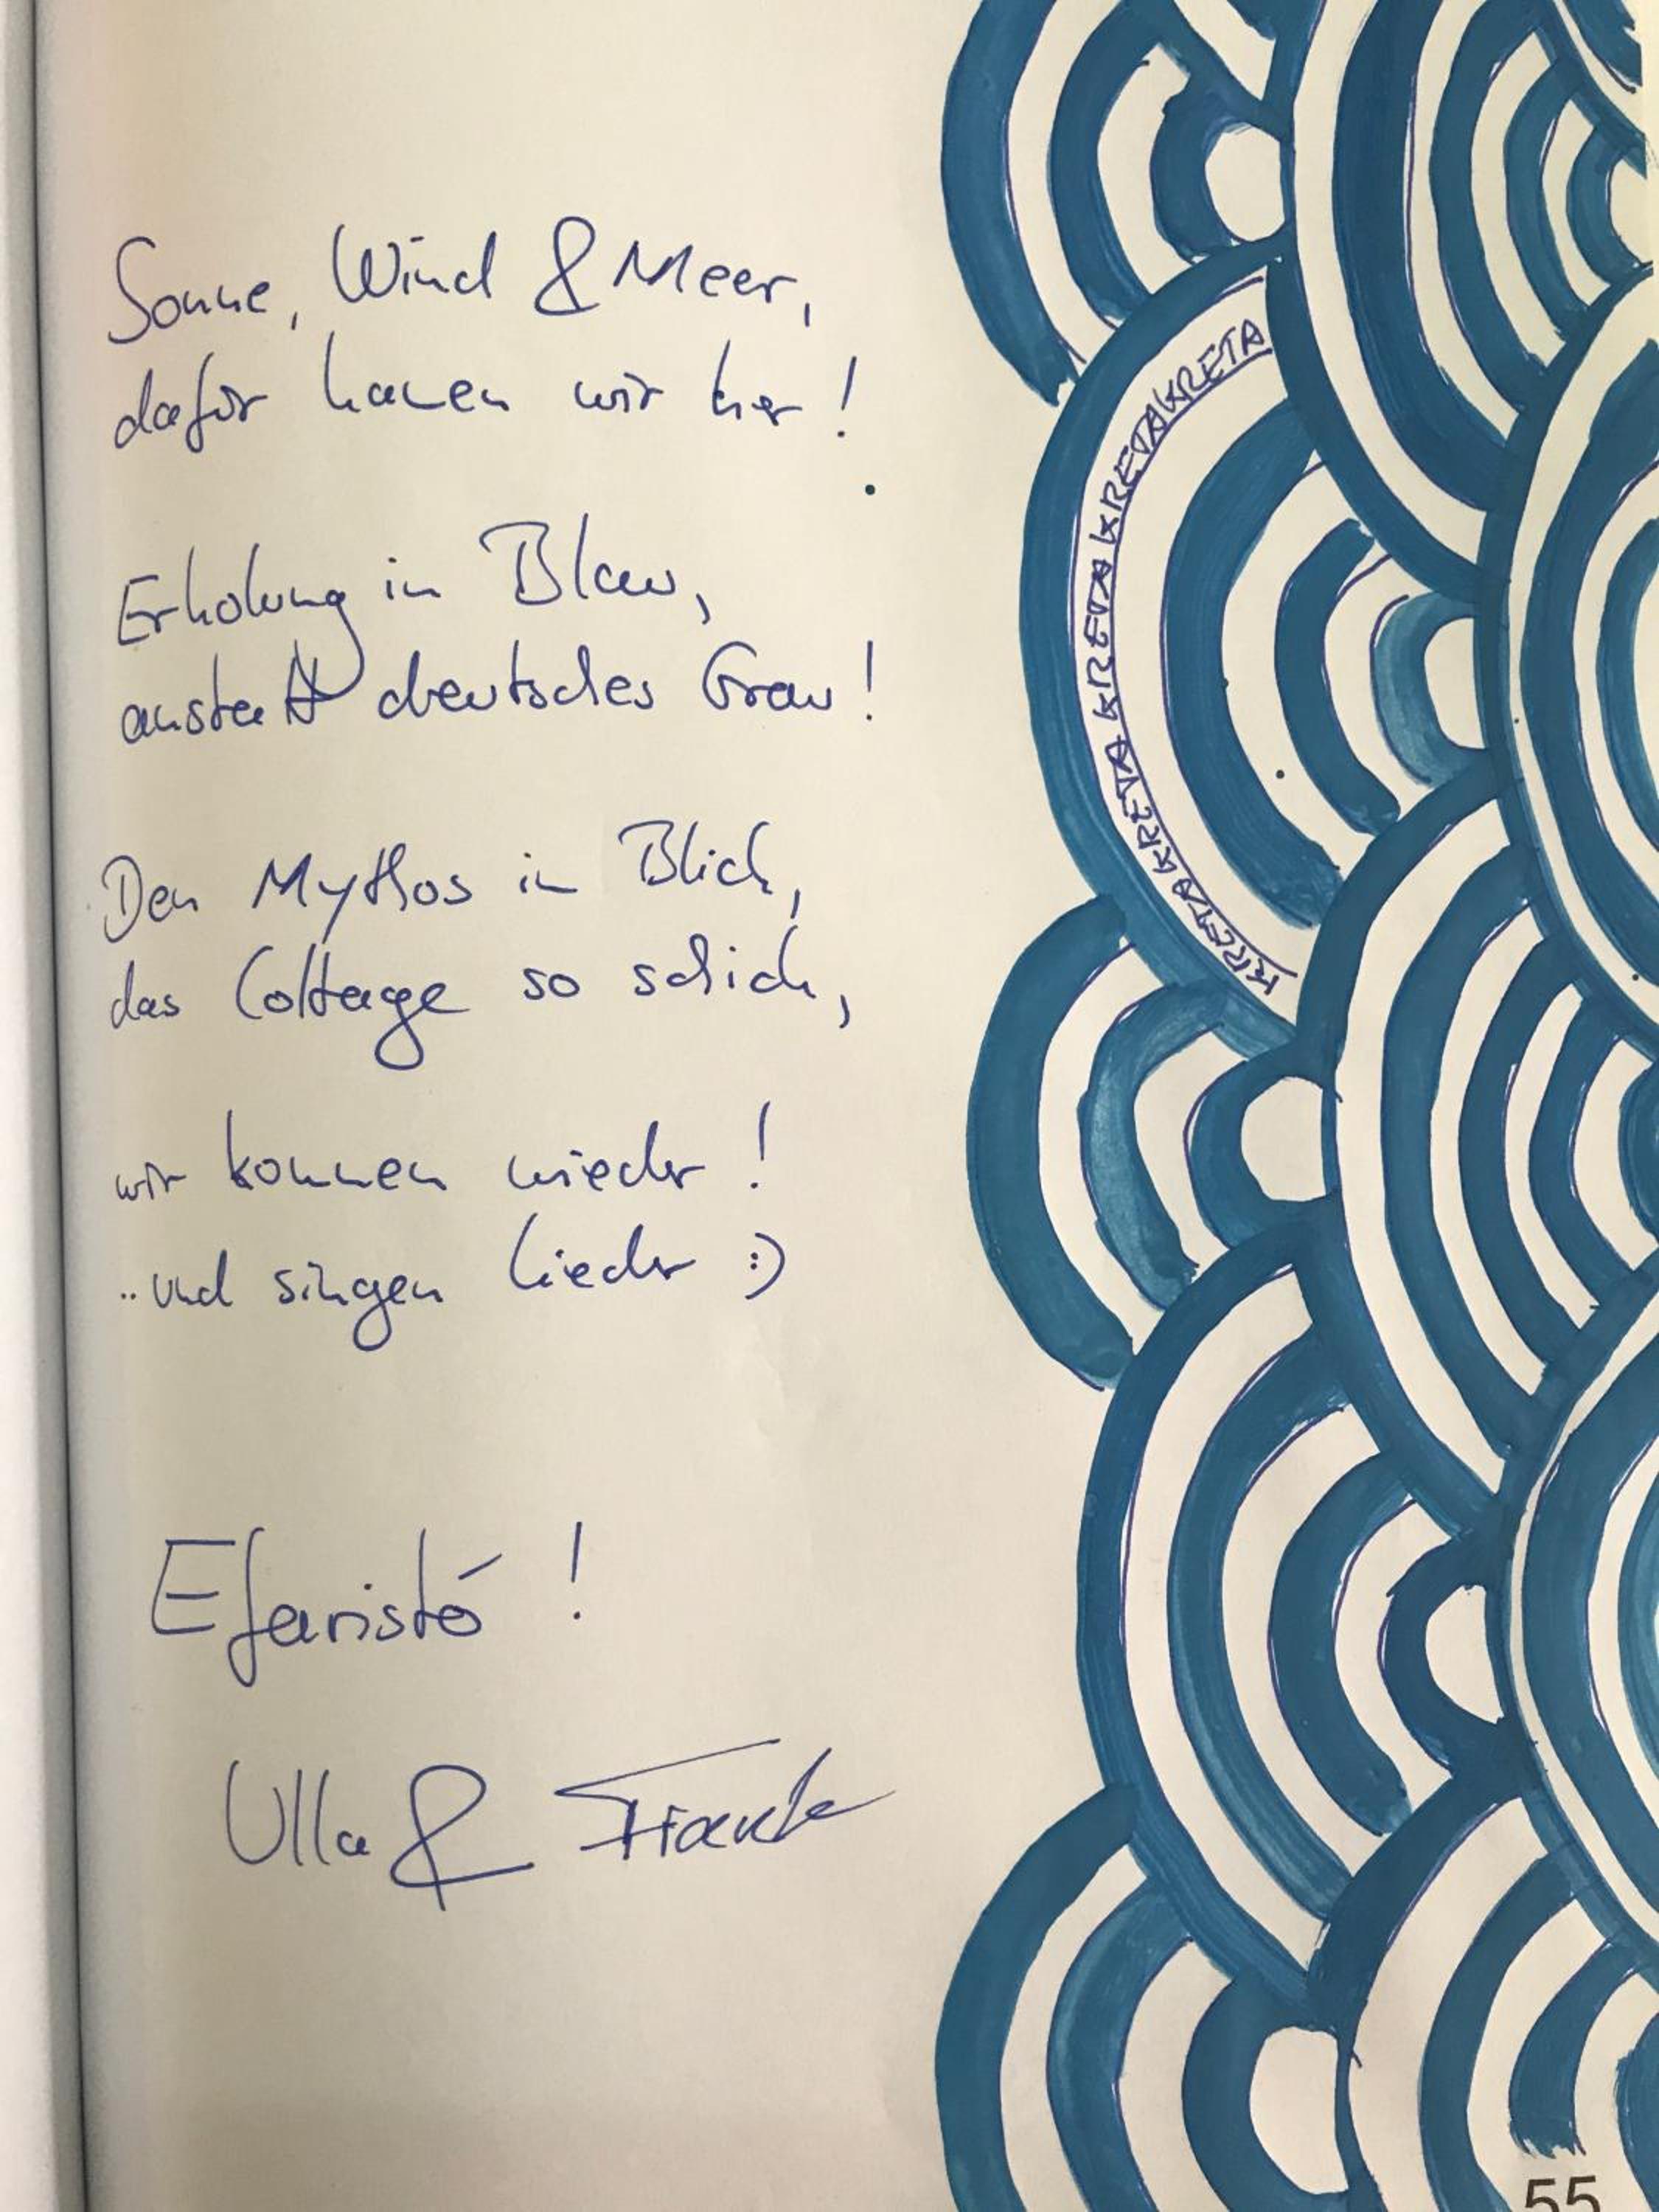 Sonne, Wind & Meer,
dafür kamen wir her!
Erholung in Blau,
anstatt deutsches Grau!
Den Mythos in Blick,
das Cottage so schick,
wir kommen wieder!
.. und singen Lieder :)
Efaristó!
Ulla & Frank
KRETA KRETA KRETA KRETA KRETA KRETA KRETA
55